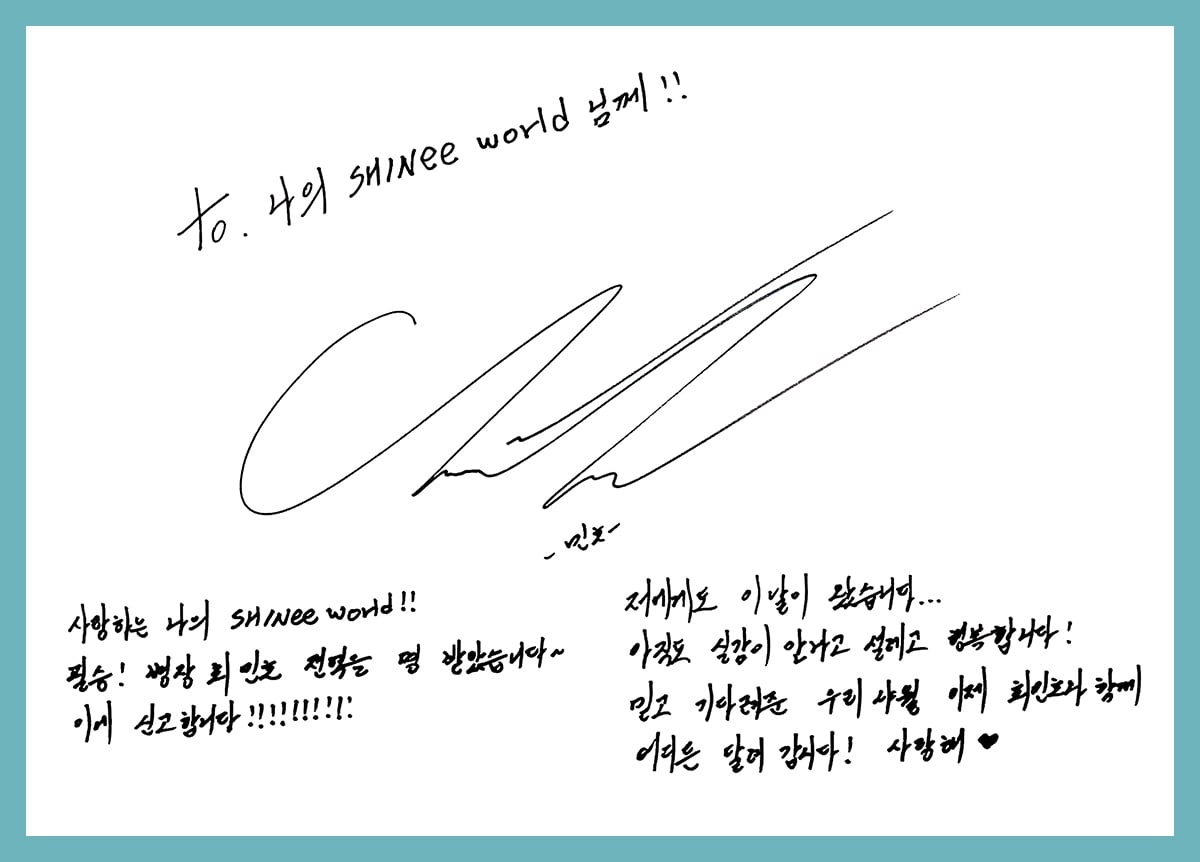 to. 나의 SHINee world 님께!!
-민호-
사랑하는 나의 SHINee world!!
필승! 병장 최민호 전역을 명 받았습니다~
이에 신고합니다!!!!!!!!!!
저에게도 이 날이 왔습니다...
아직도 실감이 안나고 설레고 행복합니다!
믿고 기다려준 우리 샤월 이제 최민호와 함께
어디든 달려 갑시다! 사랑해 ♥